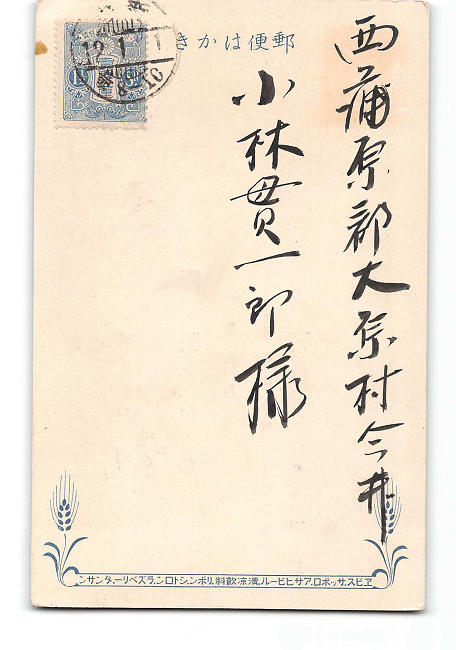 郵便はかき
西蒲原郡大原村今井
小林貫一郎様
ヱビス、サッポロ、アサヒビール、清凉飲料、リボン、シトロン、ラズベリー、タンサン
12.1.1